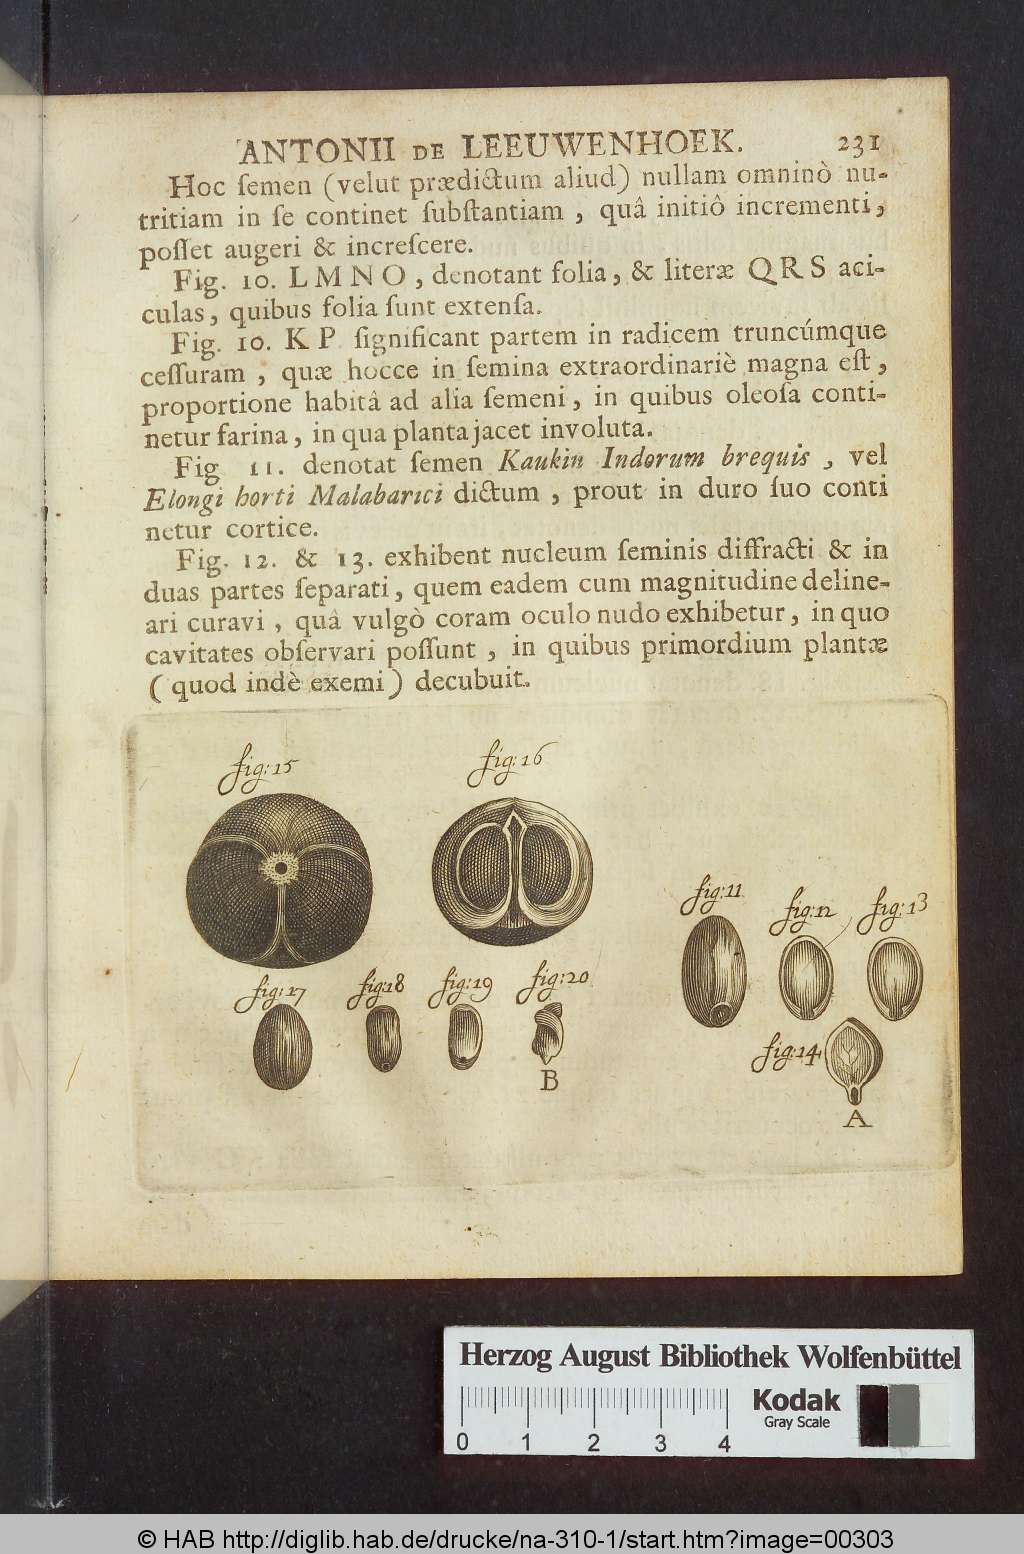 ANTONII DE LEEUWENHOEK. 231
Hoc ſemen (velut prædictum aliud) nullam omninò nu-
tritiam in ſe continet ſubſtantiam, quâ initiô incrementi,
poſſet augeri & increſcere.
Fig. 10. L M N O, denotant folia, & literæ Q R S aci-
culas, quibus folia ſunt extenſa.
Fig. 10. K P ſignificant partem in radicem truncúmque
ceſſuram, quæ hocce in ſemina extraordinariè magna eſt,
proportione habitâ ad alia ſemeni, in quibus oleoſa conti-
netur farina, in qua planta jacet involuta.
Fig 11. denotat ſemen Kaukin Indorum brequis, vel
Elongi horti Malabarici dictum, prout in duro ſuo conti
netur cortice.
Fig. 12. & 13. exhibent nucleum ſeminis diffracti & in
duas partes ſeparati, quem eadem cum magnitudine deline-
ari curavi, quâ vulgò coram oculo nudo exhibetur, in quo
cavitates obſervari poſſunt, in quibus primordium plantæ
(quod indè exemi) decubuit.
fig: 15 fig: 16
fig: 11 fig: 12 fig: 13
fig: 17 fig: 18 fig: 19 fig: 20
fig: 14
B
A
Herzog August Bibliothek Wolfenbüttel
Kodak
Gray Scale
0 1 2 3 4
© HAB http://diglib.hab.de/drucke/na-310-1/start.htm?image=00303